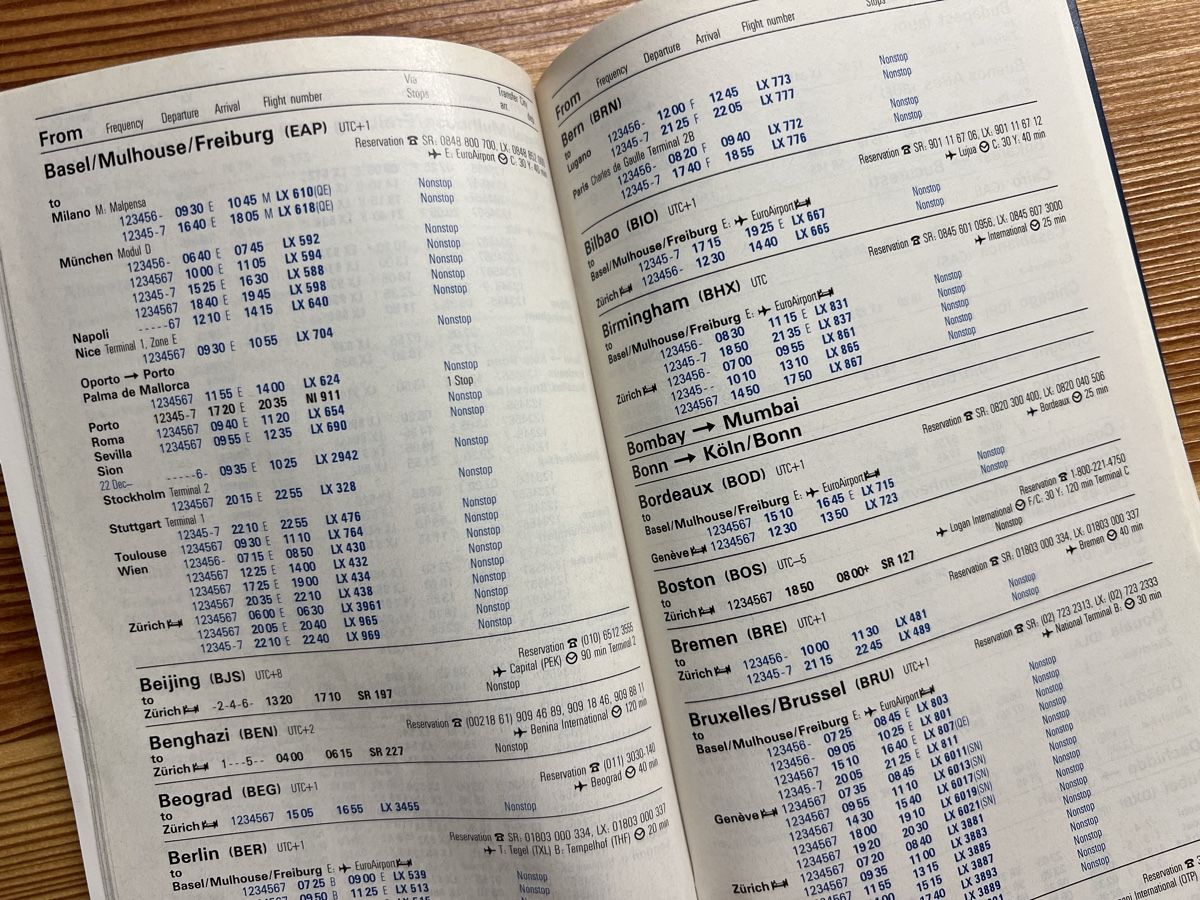 From Frequency Departure Arrival Flight number Via Stops Transfer City arr. dep.
Basel/Mulhouse/Freiburg (EAP) UTC+1
Reservation ☎ SR: 0848 800 700, LX: 0848
to ✈ E: EuroAirport C: 30 Y: 40 min
Milano M: Malpensa
123456- 09 30 E 10 45 M LX 610(QE) Nonstop
12345-7 16 40 E 18 05 M LX 618(QE) Nonstop
München Modul D
123456- 06 40 E 07 45 LX 592 Nonstop
1234567 10 00 E 11 05 LX 594 Nonstop
12345-7 15 25 E 16 30 LX 588 Nonstop
1234567 18 40 E 19 45 LX 598 Nonstop
Napoli -----67 12 10 E 14 15 LX 640 Nonstop
Nice Terminal 1, Zone E
1234567 09 30 E 10 55 LX 704 Nonstop
Oporto → Porto
Palma de Mallorca
1234567 11 55 E 14 00 LX 624 Nonstop
12345-7 17 20 E 20 35 NI 911 1 Stop
Porto 1234567 09 40 E 11 20 LX 654 Nonstop
Roma 1234567 09 55 E 12 35 LX 690 Nonstop
Sevilla
Sion
22 Dec– -----6- 09 35 E 10 25 LX 2942 Nonstop
Stockholm Terminal 2
1234567 20 15 E 22 55 LX 328 Nonstop
Stuttgart Terminal 1
12345-7 22 10 E 22 55 LX 476 Nonstop
Toulouse 1234567 09 30 E 11 10 LX 764 Nonstop
Wien 123456- 07 15 E 08 50 LX 430 Nonstop
1234567 12 25 E 14 00 LX 432 Nonstop
1234567 17 25 E 19 00 LX 434 Nonstop
1234567 20 35 E 22 10 LX 438 Nonstop
Zürich 1234567 06 00 E 06 30 LX 3961 Nonstop
1234567 20 05 E 20 40 LX 965 Nonstop
12345-7 22 10 E 22 40 LX 969 Nonstop
Beijing (BJS) UTC+8 Reservation ☎ (010) 6512 3555
to ✈ Capital (PEK) 90 min Terminal 2
Zürich -2-4-6- 13 20 17 10 SR 197 Nonstop
Benghazi (BEN) UTC+2 Reservation ☎ (00218 61) 909 46 89, 909 18 46, 909 88 11
to ✈ Benina International 120 min
Zürich 1---5-- 04 00 06 15 SR 227 Nonstop
Beograd (BEG) UTC+1 Reservation ☎ (011) 3030-140
to ✈ Beograd 40 min
Zürich 1234567 15 05 16 55 LX 3455 Nonstop
Berlin (BER) UTC+1 Reservation ☎ SR: 01803 000 334, LX: 01803 000 337
to ✈ T: Tegel (TXL) B: Tempelhof (THF) 20 min
Basel/Mulhouse/Freiburg E: ✈ EuroAirport
1234567 07 25 B 09 00 E LX 539 Nonstop
09 50 B 11 25 E LX 513 Nonstop
From Frequency Departure Arrival Flight number Stops
Bern (BRN)
to
Lugano 123456- 12 00 F 12 45 LX 773 Nonstop
12345-7 21 25 F 22 05 LX 777 Nonstop
Paris Charles de Gaulle Terminal 2B
123456- 08 20 F 09 40 LX 772 Nonstop
12345-7 17 40 F 18 55 LX 776 Nonstop
Bilbao (BIO) UTC+1 Reservation ☎ SR: 901 11 67 06, LX: 901 11 67 12
to ✈ Lujua C: 30 Y: 40 min
Basel/Mulhouse/Freiburg E: ✈ EuroAirport
12345-7 17 15 19 25 E LX 667 Nonstop
Zürich 123456- 12 30 14 40 LX 665 Nonstop
Birmingham (BHX) UTC Reservation ☎ SR: 0845 601 0956, LX: 0845 607 3000
to ✈ International 25 min
Basel/Mulhouse/Freiburg E: ✈ EuroAirport
123456- 08 30 11 15 E LX 831 Nonstop
12345-7 18 50 21 35 E LX 837 Nonstop
Zürich 123456- 07 00 09 55 LX 861 Nonstop
12345-- 10 10 13 10 LX 865 Nonstop
1234567 14 50 17 50 LX 867 Nonstop
Bombay → Mumbai
Bonn → Köln/Bonn
Bordeaux (BOD) UTC+1 Reservation ☎ SR: 0820 300 400, LX: 0820 040 506
to ✈ Bordeaux 25 min
Basel/Mulhouse/Freiburg E: ✈ EuroAirport
1234567 15 10 16 45 E LX 715 Nonstop
Genève 1234567 12 30 13 50 LX 723 Nonstop
Boston (BOS) UTC–5 Reservation ☎ 1-800-221-4750
to ✈ Logan International F/C: 30 Y: 120 min Terminal C
Zürich 1234567 18 50 08 00+ SR 127 Nonstop
Bremen (BRE) UTC+1 Reservation ☎ SR: 01803 000 334, LX: 01803 000 337
to ✈ Bremen 40 min
Zürich 123456- 10 00 11 30 LX 481 Nonstop
12345-7 21 15 22 45 LX 489 Nonstop
Bruxelles/Brussel (BRU) UTC+1 Reservation ☎ SR: (02) 723 2313, LX: (02) 723 2333
to ✈ National Terminal B: 30 min
Basel/Mulhouse/Freiburg E: ✈ EuroAirport
123456- 07 25 08 45 E LX 803 Nonstop
123456- 09 05 10 25 E LX 801 Nonstop
1234567 15 10 16 40 E LX 807(QE) Nonstop
12345-7 20 05 21 25 E LX 811 Nonstop
Genève 1234567 07 35 08 45 LX 6011(SN) Nonstop
1234567 09 55 11 10 LX 6013(SN) Nonstop
1234567 14 30 15 40 LX 6017(SN) Nonstop
1234567 18 00 19 10 LX 6019(SN) Nonstop
19 20 20 30 LX 6021(SN) Nonstop
Zürich 1234567 07 20 08 40 LX 3881 Nonstop
1234567 09 35 11 00 LX 3883 Nonstop
11 55 13 15 LX 3885 Nonstop
15 15 LX 3887 Nonstop
17 40 LX 3893
LX 3889
International (OTP)